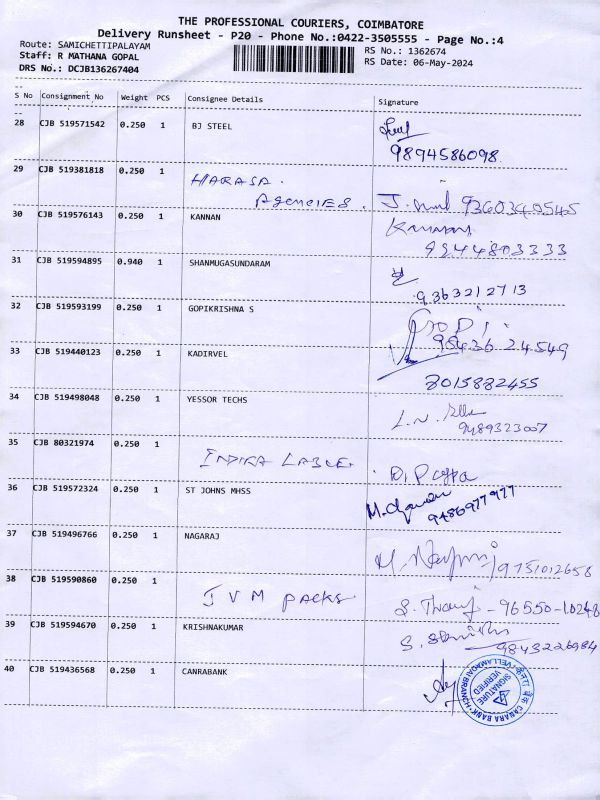 THE PROFESSIONAL COURIERS, COIMBATORE
Delivery Runsheet - P20 - Phone No.:0422-3505555 - Page No.:4
Route: SAMICHETTIPALAYAM
RS No.: 1362674
Staff: R MATHANA GOPAL
RS Date: 06-May-2024
DRS No.: DCJB136267404
S No Consignment No Weight PCS Consignee Details Signature
28 CJB 519571542 0.250 1 BJ STEEL
9894586098
29 CJB 519381818 0.250 1 HARASA.
Agencies.
30 CJB 519576143 0.250 1 KANNAN Kannan
9244803333
31 CJB 519594895 0.940 1 SHANMUGASUNDARAM
9363212713
32 CJB 519593199 0.250 1 GOPIKRISHNA S
98436 24549
33 CJB 519440123 0.250 1 KADIRVEL
8015882455
34 CJB 519498048 0.250 1 YESSOR TECHS
9489323007
35 CJB 80321974 0.250 1 INDIRA
36 CJB 519572324 0.250 1 ST JOHNS MHSS
9486977977
37 CJB 519496766 0.250 1 NAGARAJ
9751012658
38 CJB 519590860 0.250 1 JVM PACKS 96550-10248
39 CJB 519594670 0.250 1 KRISHNAKUMAR
9843226984
40 CJB 519436568 0.250 1 CANRABANK
SIGNATURE
VERIFIED
CANARA BANK